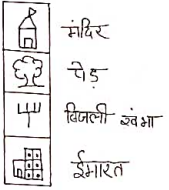 मंदिर
पेड़
बिजली खंभा
ईमारत